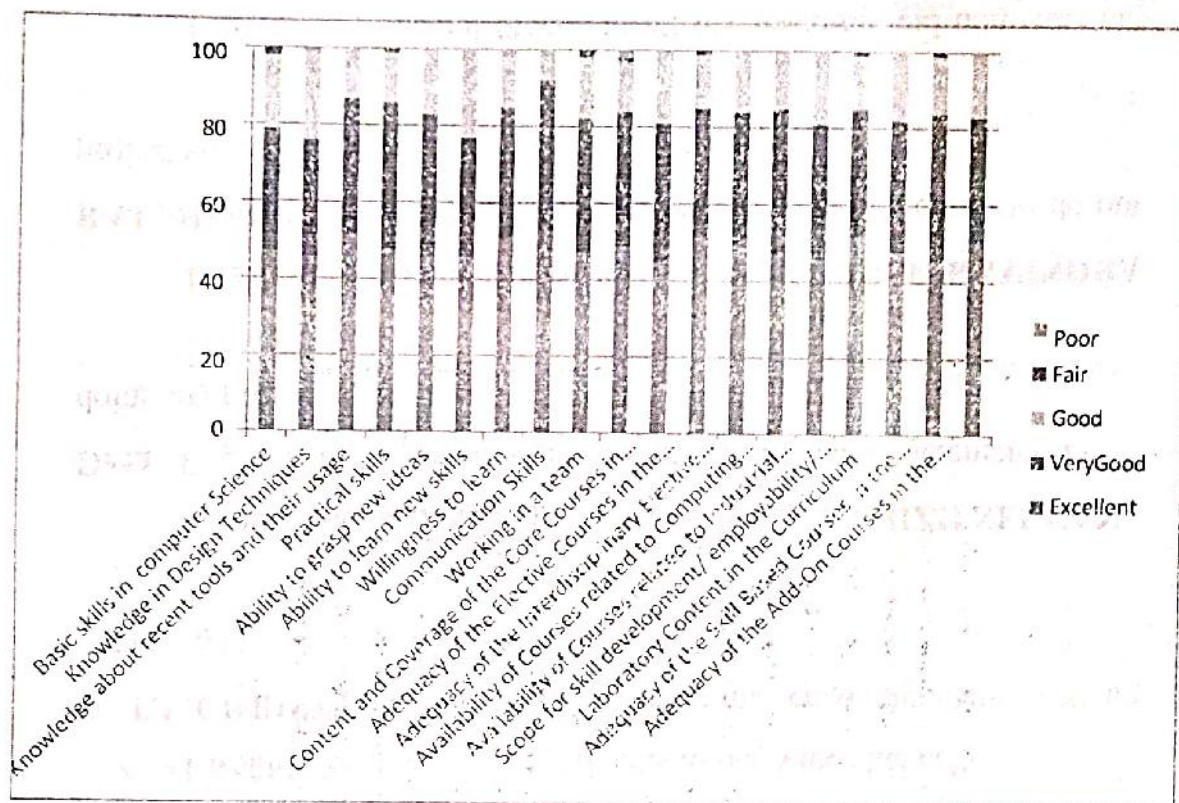 100
80
60
40
20
0
Poor
Fair
Good
VeryGood
Excellent
Basic skills in computer Science
Knowledge in Design Techniques
Knowledge about recent tools and their usage
Practical skills
Ability to grasp new ideas
Ability to learn new skills
Willingness to learn
Communication Skills
Working in a team
Content and Coverage of the Core Courses in...
Adequacy of the Elective Courses in the...
Adequacy of the Interdisciplinary Elective...
Availability of Courses related to Computing...
Availability of Courses related to Industrial...
Scope for skill development/ employability/...
Laboratory Content in the Curriculum
Adequacy of the Skill Based Courses in the...
Adequacy of the Add-On Courses in the...